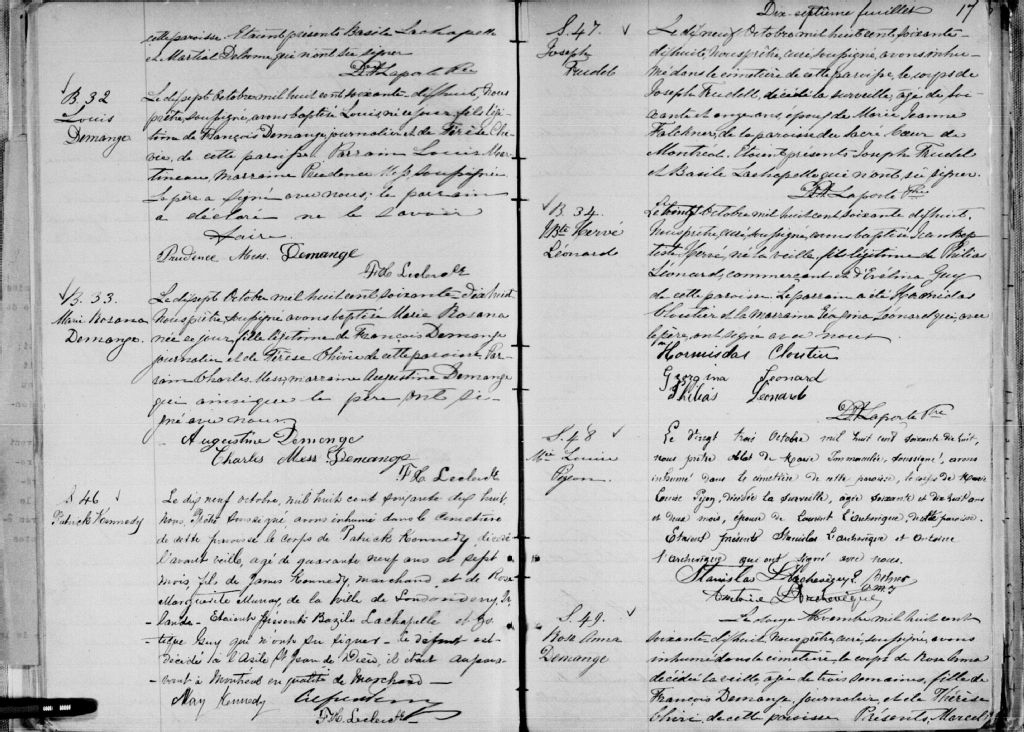 cette paroisse. Etaient présents Basile Lachapelle
et Martial Delorme qui n'ont su signer
Laporte Ptre
B. 32
Louis
Demange
Le dix sept Octobre mil huit cent soixante dix huit, Nous
prêtre, soussigné, avons baptisé Louis né ce jour fils légi-
time de François Demange journalier et de Térèse Thi-
rie, de cette paroisse. Parrain Louis Mar-
tineau, marraine Prudence Mess soussignée
Le père a signé avec nous; le parrain
a déclaré ne le savoir
faire.
Prudence Mess. Demange
F.X. Leclerc Ptre
B. 33.
Marie Rosana
Demange.
Le dix sept Octobre mil huit cent soixante-dix huit
Nous prêtre, soussigné avons baptisé Marie Rosana
née ce jour, fille légitime de François Demange
journalier et de Térèse Thirie de cette paroisse Par-
rain Charles Mess, marraine Augustine Demange
qui ainsi que le père ont si-
gné avec nous
Augustine Demange
Charles Mess Demange
F.X. Leclerc Ptre
S 46
Patrick Kennedy
Le dix neuf octobre, mil huit cent soixante dix huit
Nous, Prêtre soussigné avons inhumé dans le cimetière
de cette paroisse le corps de Patrick Kennedy, décédé
l'avant veille, agé de quarante neuf ans et sept
mois, fils de James Kennedy, marchand et de Rose
Marguerite Murray, de la ville de Londonderry, Ir-
lande. Etaient présents Bazile Lachapelle et
Guy qui n'ont su signer. Le défunt est
décédé à l'Asile St Jean de Dieu, il était aupara-
vant à Montréal en qualité de Marchand
May Kennedy
F.X. Leclerc Ptre
Dix septième feuillet 17
S. 47
Joseph
Trudel
Le dix neuf Octobre mil huit cent soixante-
dix huit, Nous prêtre, curé soussigné, avons inhu-
mé dans le cimetière de cette paroisse, le corps de
Joseph Trudell, décédé la surveille, agé de soi-
xante et onze ans, époux de Marie Jeanne
Falckner, de la paroisse du Sacré Coeur de
Montréal. Etaient présents Joseph Trudel
et Basile Lachapelle qui n'ont su signer.
Laporte Ptre
B. 34.
J. Bte Hervé
Léonard
Le vingt Octobre mil huit cent soixante dix huit.
Nous prêtre, curé soussigné, avons baptisé Jean Bap-
tiste Hervé, né la veille, fils légitime de Philias
Léonard, commerçant et d'Evélina Guy
de cette paroisse Le parrain a été Hormidas
Cloutier et la marraine Géorgina Léonard qui, avec
le père, ont signé avec nous.
Hormisdas Cloutier
Georgina Leonard
Philias Leonard
Laporte Ptre
S. 48
Mie Louise
Pigeon.
Le vingt trois Octobre mil huit cent soixante dix huit,
nous prêtre Oblat de Marie Immaculée, soussigné, avons
inhumé dans le cimetière de cette paroisse, le corps de Marie
Louise Pigeon, décédée la surveille, agée soixante et dix huit ans
et deux mois, épouse de Laurent L'archevêque, de cette paroisse.
Etaient présents Stanislas L'archevêque et Antoine
L'archevêque qui ont signé avec nous.
Stanislas L'Archevêque
Antoine L'Archevêque
S. 49.
Rose Anna
Demange
Le Novembre mil huit cent
soixante-dix huit, Nous prêtre, curé, soussigné avons
inhumé dans le cimetière, le corps de Rose Anna
décédée la veille, agée de trois semaines, fille de
François Demange, journalier, et de Thérèse
Thirie, de cette paroisse Présents, Marcel